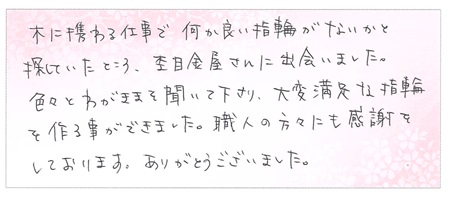 木に携わる仕事で 何か良い指輪がないかと
探していたところ、杢目金屋さんに出会いました。
色々とわがままを聞いて下さり、大変満足な指輪
を作る事ができました。職人の方々にも感謝を
しております。ありがとうございました。